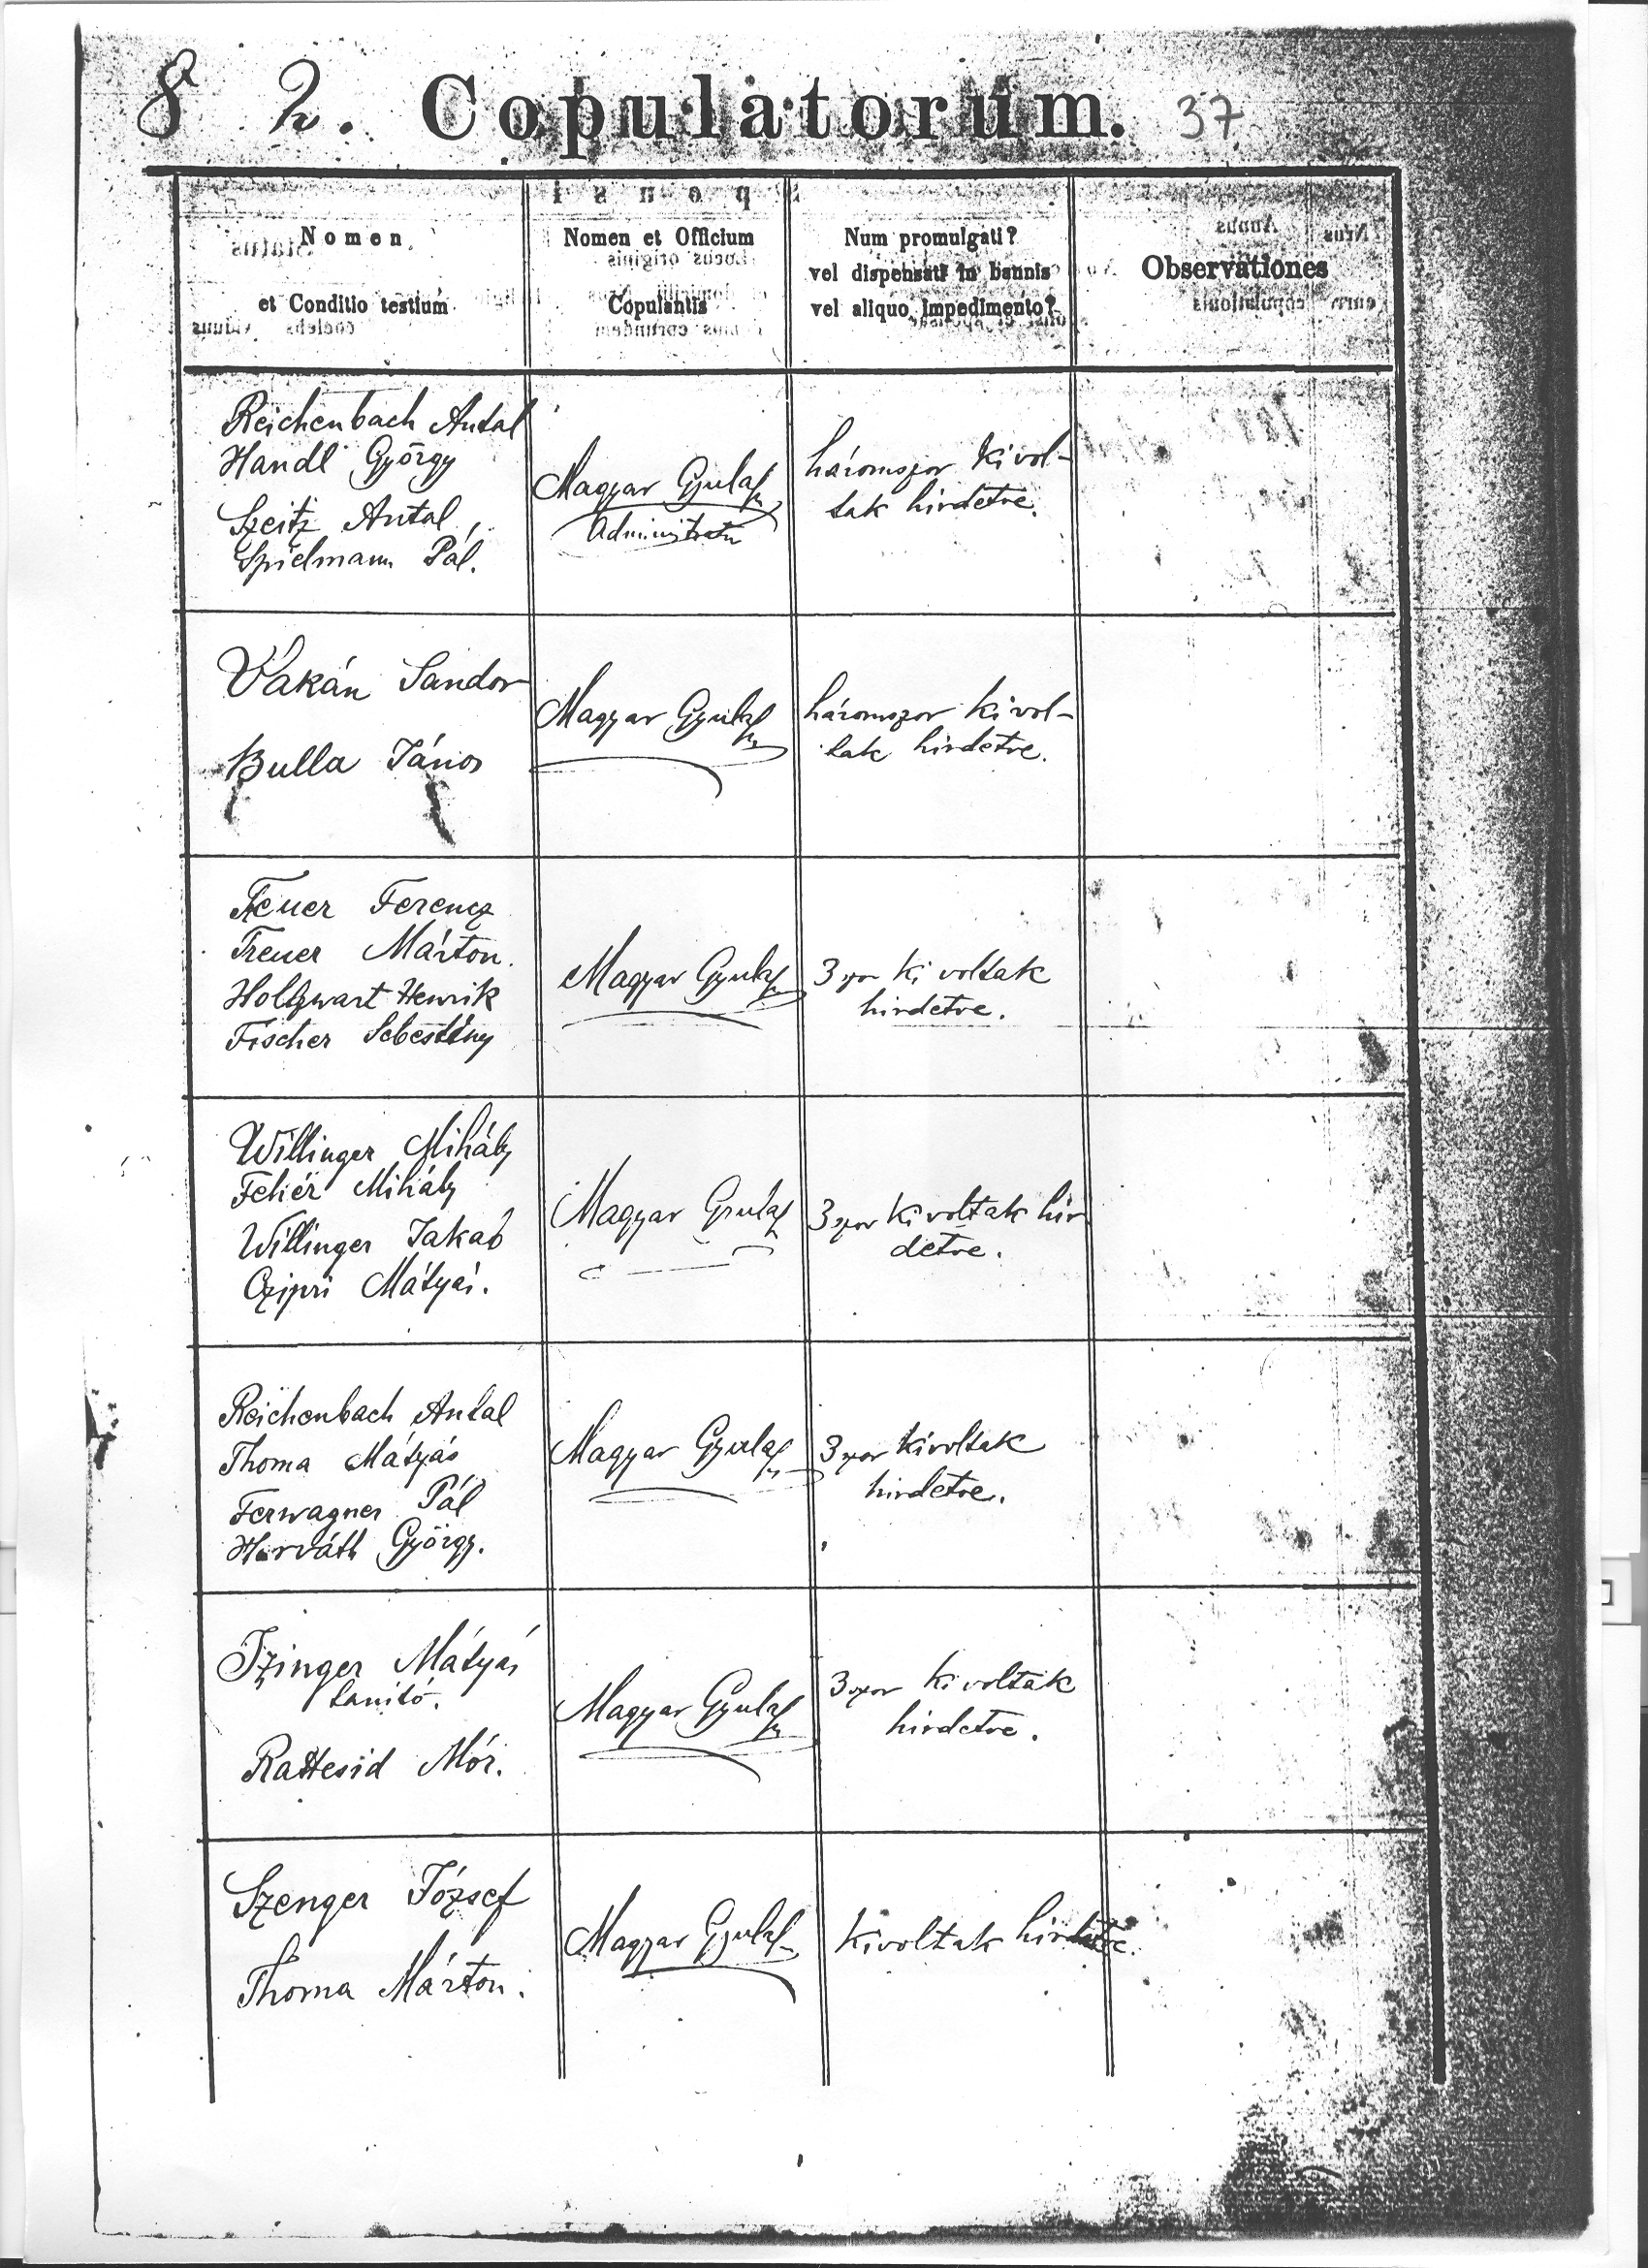 8 2. Copulatorum. 37
Nomen
et Conditio testium
Nomen et Officium
Copulantis
Num promulgati?
vel dispensati in bannis
vel aliquo impedimento?
Observationes
Reichenbach Antal
Handl György
Szeitz Antal,
Spielmann Pál.
Magyar Gyula
Administrator
háromszor ki vol-
tak hirdetve.
Vakán Sándor
Bulla János
Magyar Gyula
háromszor ki vol-
tak hirdetve.
Feuer Ferencz
Treuer Márton.
Holzwart Henrik
Fischer Sebestény
Magyar Gyula
3szor ki voltak
hirdetve.
Willinger Mihály
Fehér Mihály
Willinger Jakab
Czipri Mátyás.
Magyar Gyula
3szor ki voltak hir
detve.
Reichenbach Antal
Thoma Mátyás
Ferwagner Pál
Horváth György.
Magyar Gyula
3szor kivoltak
hirdetve.
Izinger Mátyás
tanító.
Mór.
Magyar Gyula
3szor ki voltak
hirdetve.
Szenger József
Thoma Márton.
Magyar Gyula
kivoltak hirdetve.